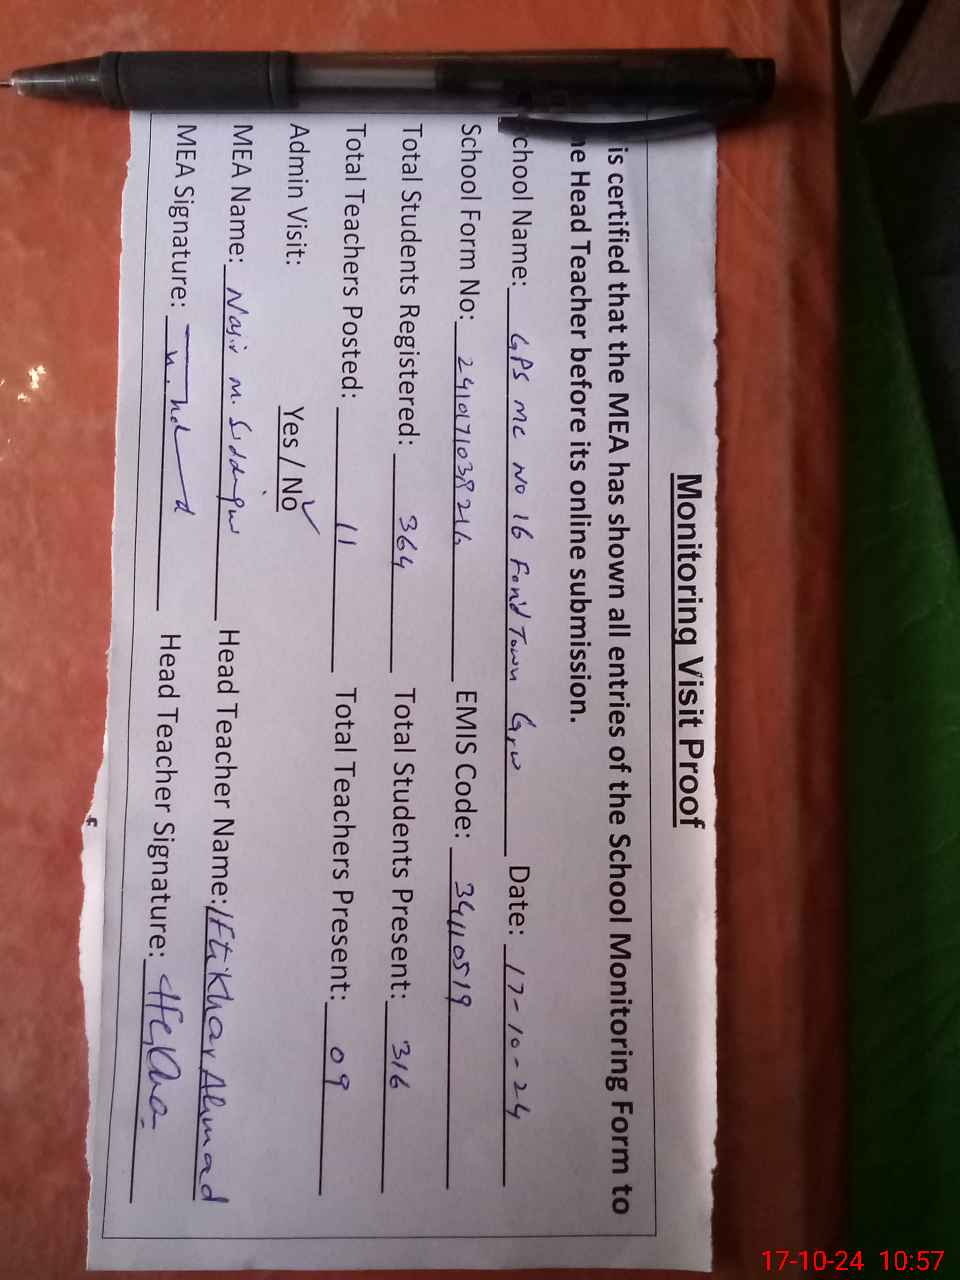 Monitoring Visit Proof
is certified that the MEA has shown all entries of the School Monitoring Form to
he Head Teacher before its online submission.
chool Name: GPS MC No 16 Date: 17-10-24
School Form No: EMIS Code: 34110519
Total Students Registered: 364 Total Students Present: 316
Total Teachers Posted: 11 Total Teachers Present: 09
Admin Visit: Yes / No ✓
MEA Name: Head Teacher Name: Iftikhar Ahmad
MEA Signature: Head Teacher Signature:
17-10-24 10:57